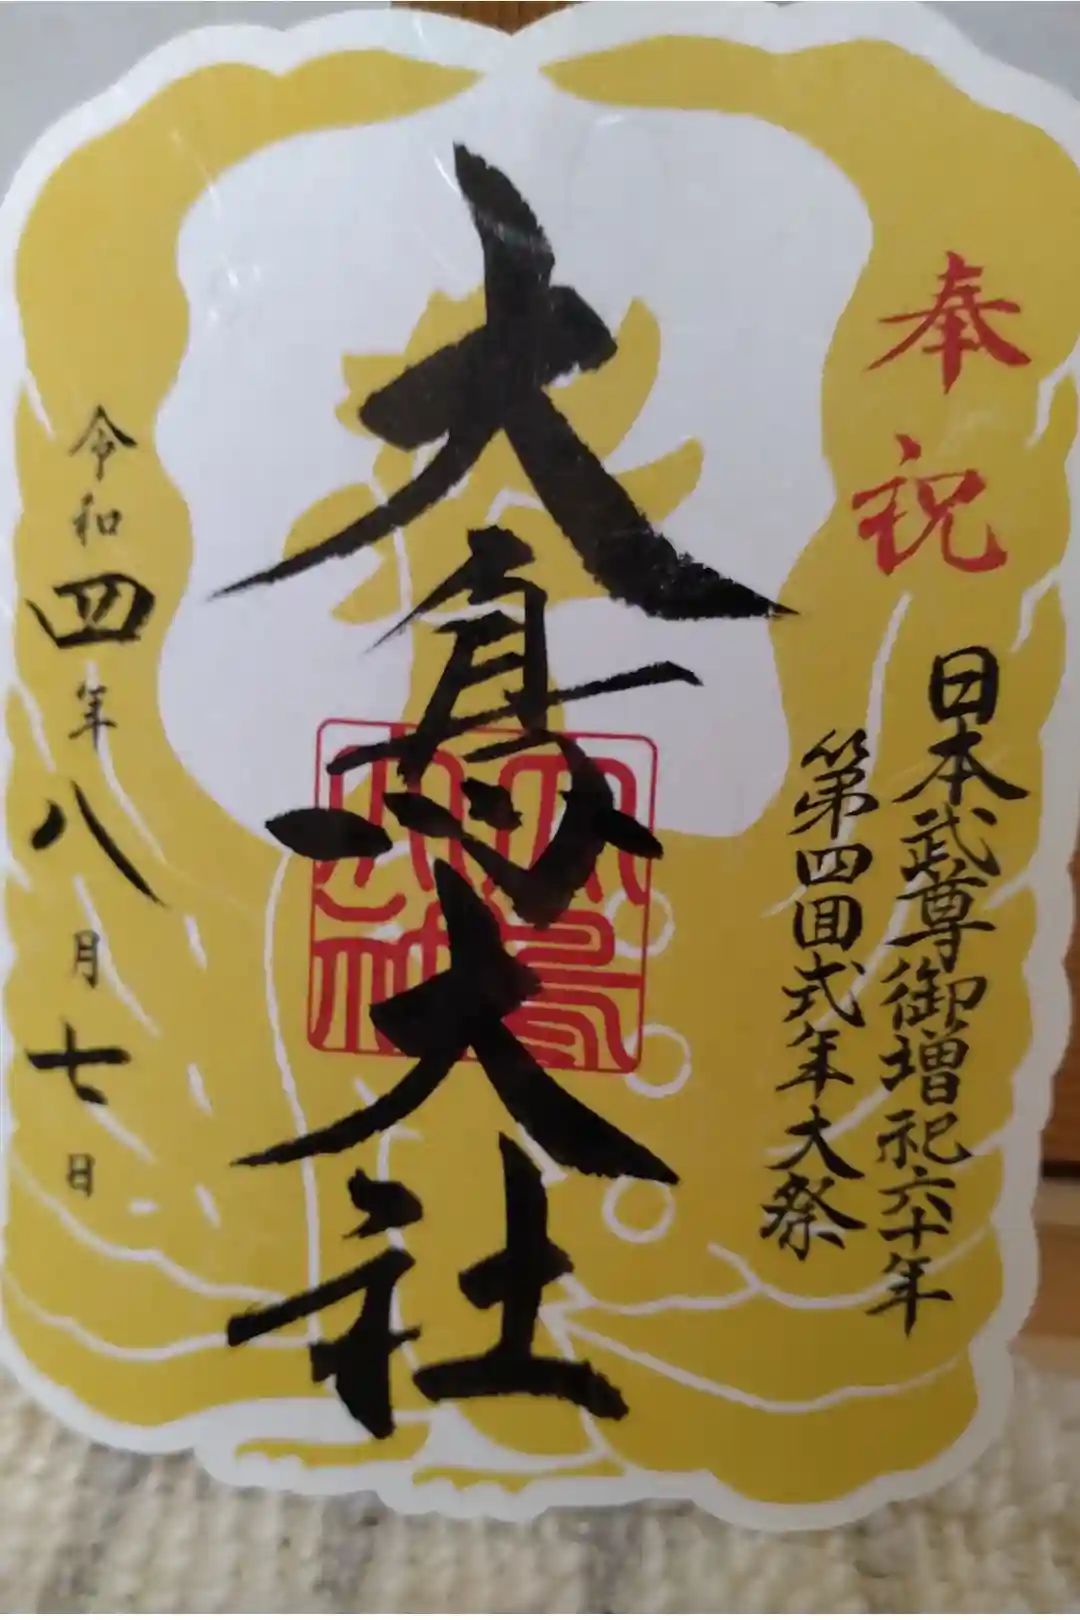 奉祝
日本武尊御増祀六十年
第四回式年大祭
大鳥大社
令和四年八月七日